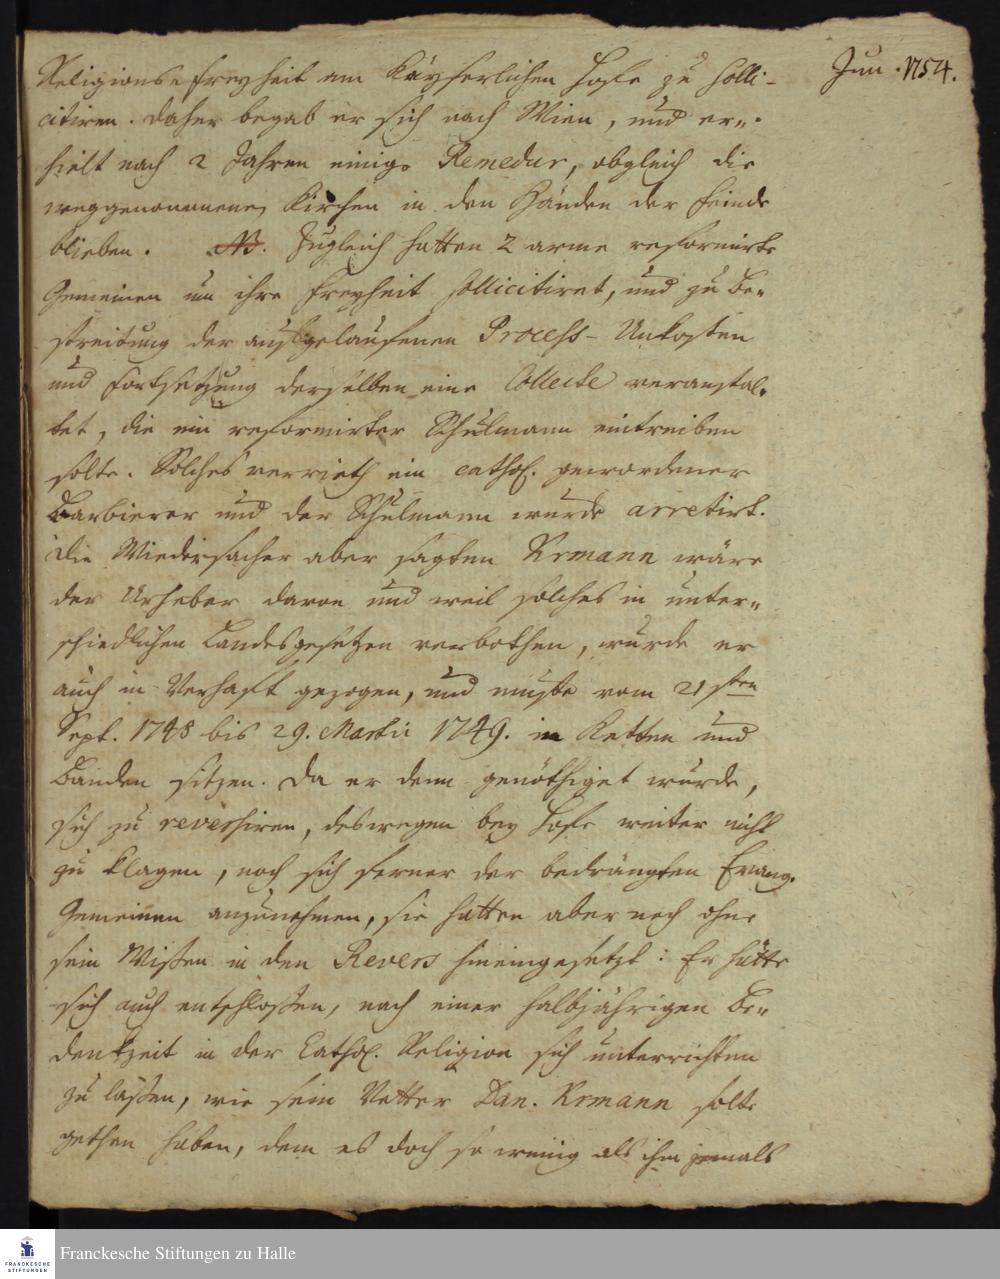 Jun. 1754.
Religions-Freyheit am Kayserlichen Hofe zu solli-
citiren. Daher begab er sich nach Wien, und er-
hielt nach 2 Jahren einige Remedur, obgleich die
weggenommenen Kirchen in den Händen der Feinde
blieben. NB. Zugleich hatten 2 arme reformirte
Gemeinen um ihre Freyheit sollicitiret, und zu Be-
streitung der aufgelaufenen Process-Unkosten
und Fortsetzung derselben eine Collecte veranstal-
tet, die ein reformirter Schulmann eintreiben
solte. Solches verrieth ein cathol. gewordener
Barbierer und der Schulmann wurde arretirt.
Die Wiedersacher aber sagten Krmann wäre
der Urheber davon und weil solches in unter-
schiedlichen Landesgesetzen verbothen, wurde er
auch in Verhaft gezogen, und muste vom 21sten
Sept. 1748 bis 29. Martii 1749. in Ketten und
Banden sitzen. Da er denn genöthiget wurde,
sich zu reversiren, deswegen bey Hofe weiter nicht
zu klagen, noch sich ferner der bedrängten Evang.
Gemeinen anzunehmen, sie hatten aber noch ohne
sein Wißen in den Revers hineingesetzt: Er hätte
sich auch entschloßen, nach einer halbjährigen Be-
denkzeit in der Cathol. Religion sich unterrichten
zu laßen, wie sein Vetter Dan. Krmann solte
gethan haben, dem es doch so wenig als ihm jemals
Franckesche Stiftungen zu Halle
FRANCKESCHE
STIFTUNGEN